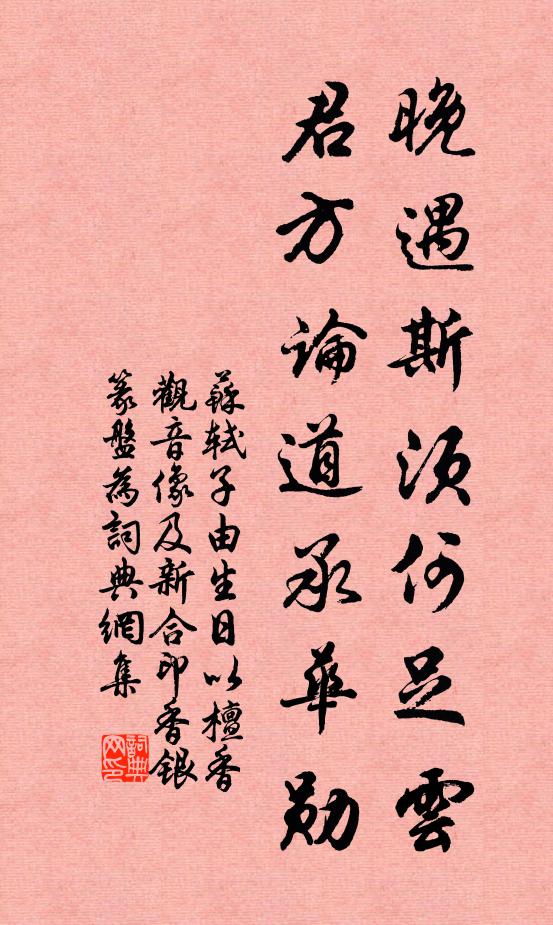 晚遇斯須何足雲
君方論道承華勛
蘇軾子由生日以檀香
觀音像及新合印香銀
篆盤為詞典網集
詞典
网印